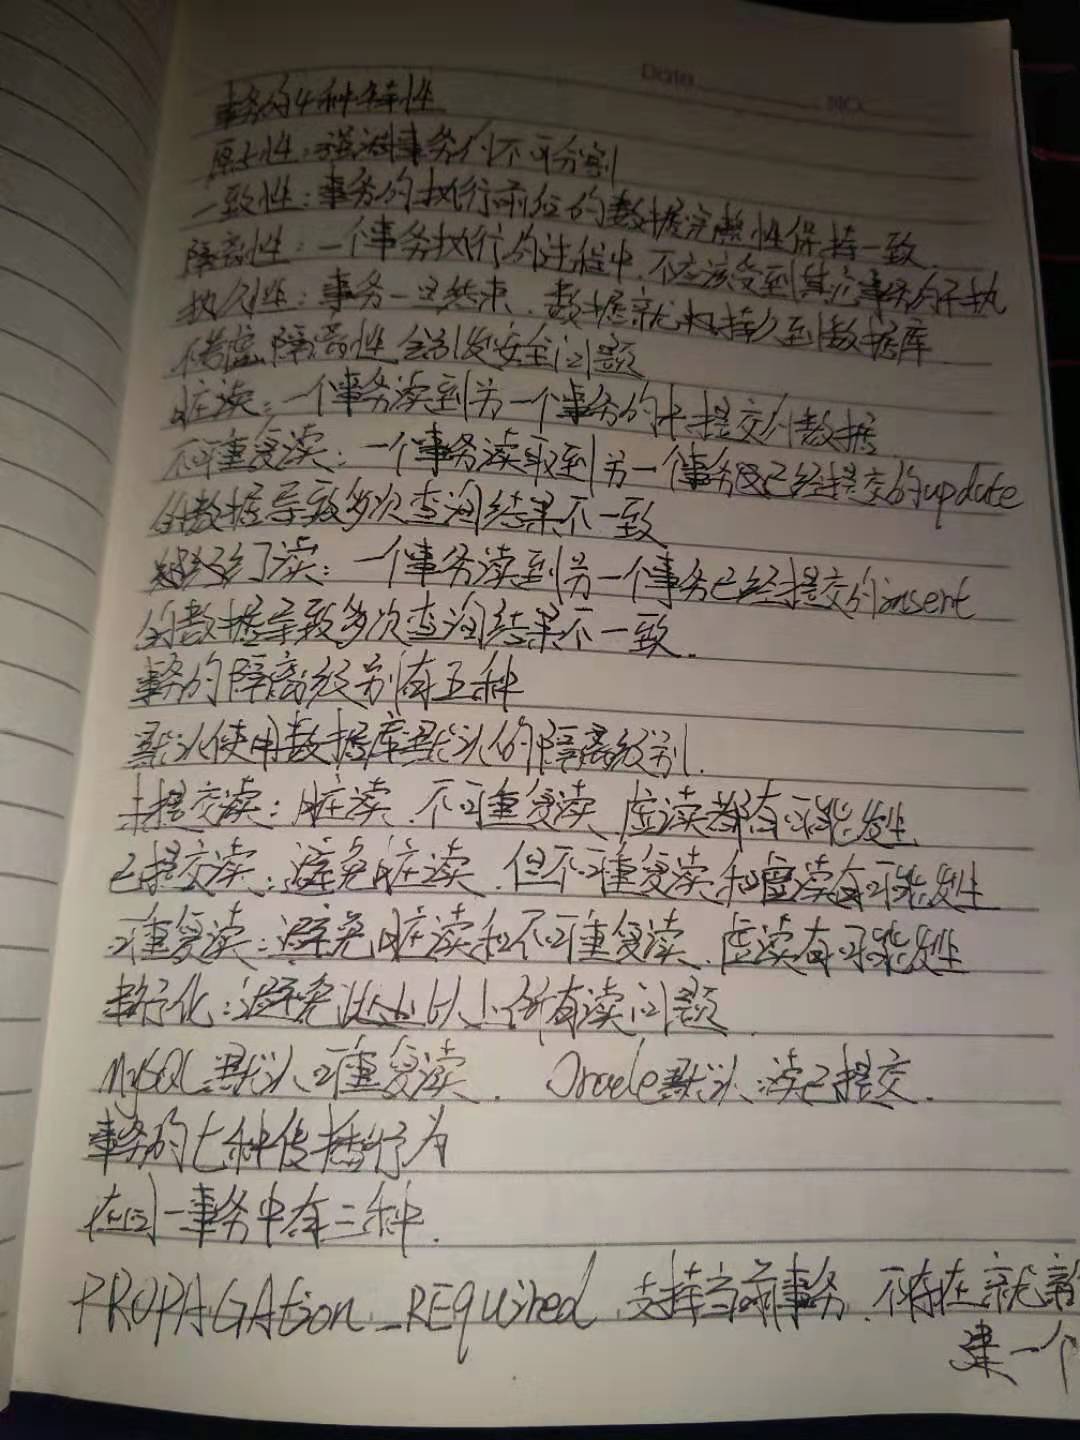 Date
NO.
事务的4种特性
原子性：强调事务的不可分割
一致性：事务的执行前后的数据完整性保持一致
隔离性：一个事务执行的过程中，不应该受到其它事务的干扰
持久性：事务一旦结束，数据就持久到数据库
不考虑隔离性会引发安全问题
脏读：一个事务读到另一个事务的未提交的数据
不可重复读：一个事务读取到另一个事务已经提交的update
的数据导致多次查询结果不一致
幻读：一个事务读到另一个事务已经提交的insert
的数据导致多次查询结果不一致.
事务的隔离级别有五种
默认使用数据库默认的隔离级别.
未提交读：脏读，不可重复读，虚读都有可能发生
已提交读：避免脏读，但不可重复读和虚读有可能发生
可重复读：避免脏读和不可重复读，虚读有可能发生
串行化：避免以上所有读问题
MySQL默认可重复读. Oracle默认读已提交.
事务的七种传播行为
在同一事务中有三种.
PROPAGAtion_REquired 支持当前事务，不存在就新
建一个